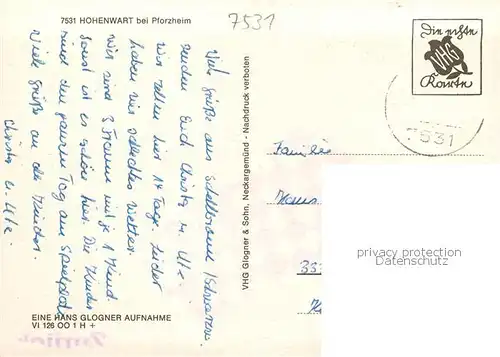 7531 HOHENWART bei Pforzheim
7531
Viele Grüße aus Schellbronn / Schwarzw.
senden Euch Christa u. Ute.
Wir zelten hier 14 Tage. Leider
haben wir schlechtes Wetter.
Wir sind 3 Frauen mit je 1 Kind.
Sonst ist es schön hier. Die Kinder
sind den ganzen Tag am Spielplatz
Viele Grüße an die Kinder.
Christa u. Ute.
EINE HANS GLOGNER AUFNAHME
VI 126 OO 1 H +
VHG Glogner & Sohn, Neckargemünd - Nachdruck verboten
Die echte
VHG
Karte
7531
Familie
privacy protection
Datenschutz